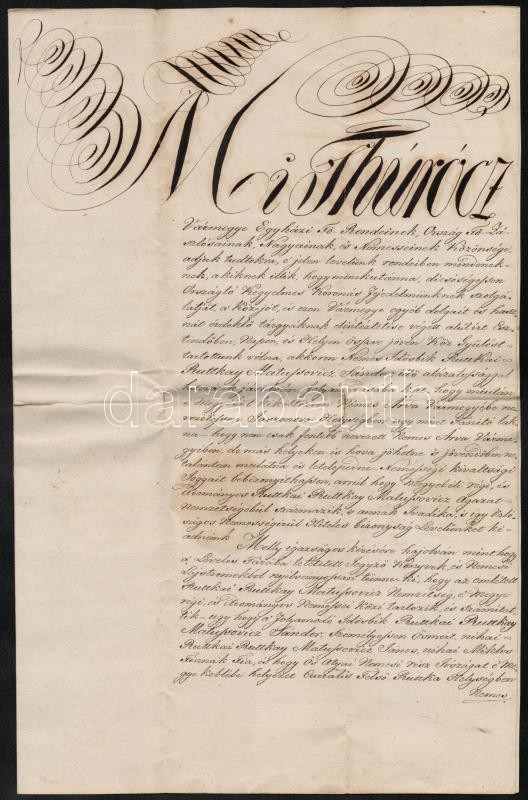 Mi Thúrócz
Vármegye Egyházi Fő Rendeinek, Ország Fő Zá-
szlósainak, Nagyainak, és Nemesseinek Közönsége
adjuk tudtokra, e jelen levelünk rendeiben mindenek-
nek, a kiknek illik, hogy minekutánna, dicsőségessen
Országló Kegyelmes Koronás Fejedelmünknek szolgá-
latját, a köz jót, és ezen Vármegye egyéb dolgait és hasz-
nát érdeklő tárgyaknak elintézése végett alólírt Esz-
tendőben, Napon, és Helyen Öszve jövén Köz Gyűlést
tartottunk vólna, akkoron Nemes Idősbik Ruttkai
Ruttkay Matyssovicz Sándor
hogy miután
Nemes Árva Vármegyébe
Helységben
na hogy nem csak fentebb nevezett Nemes Árva Várme-
gyében, de más helyeken is hova jöhetne s jövendőben
Nemességi kiváltsági
Joggait bebizonyíthassa, arrúl hogy Megyebéli régi, és
Adományos Ruttkai Ruttkay Matyssovicz Ágazat
Nemzetségébül származik, s annak Ivadéka, s így Való-
ságos Nemességérül Hiteles bizonyság Levelünket ki-
adnánk.
Melly igazságos kérésére hajolván mint hogy
a Leveles Tárába letétetett Jegyző Könyvek, és Nemesi
Lajstromokbol nyilvánossan kitünne ki, hogy az említett
Ruttkai Ruttkay Matyssovicz Nemzettség, e Megye
régi, és Adományos Nemessei közi tartozik, és számítat-
tik, úgy hogy a Folyamodó Idősbik Ruttkai Ruttkay
Matyssovicz Sándor Személyessen Ösméret, néhai
Ruttkai Ruttkay Matyssovicz János, néhai Miklós
Fiának Fia, és hogy Ős Atyai Nemesi rész Jószágát e Me-
gye keblébe helyezet Curialis Felső Ruttka Helységben
Nemes
darabanth